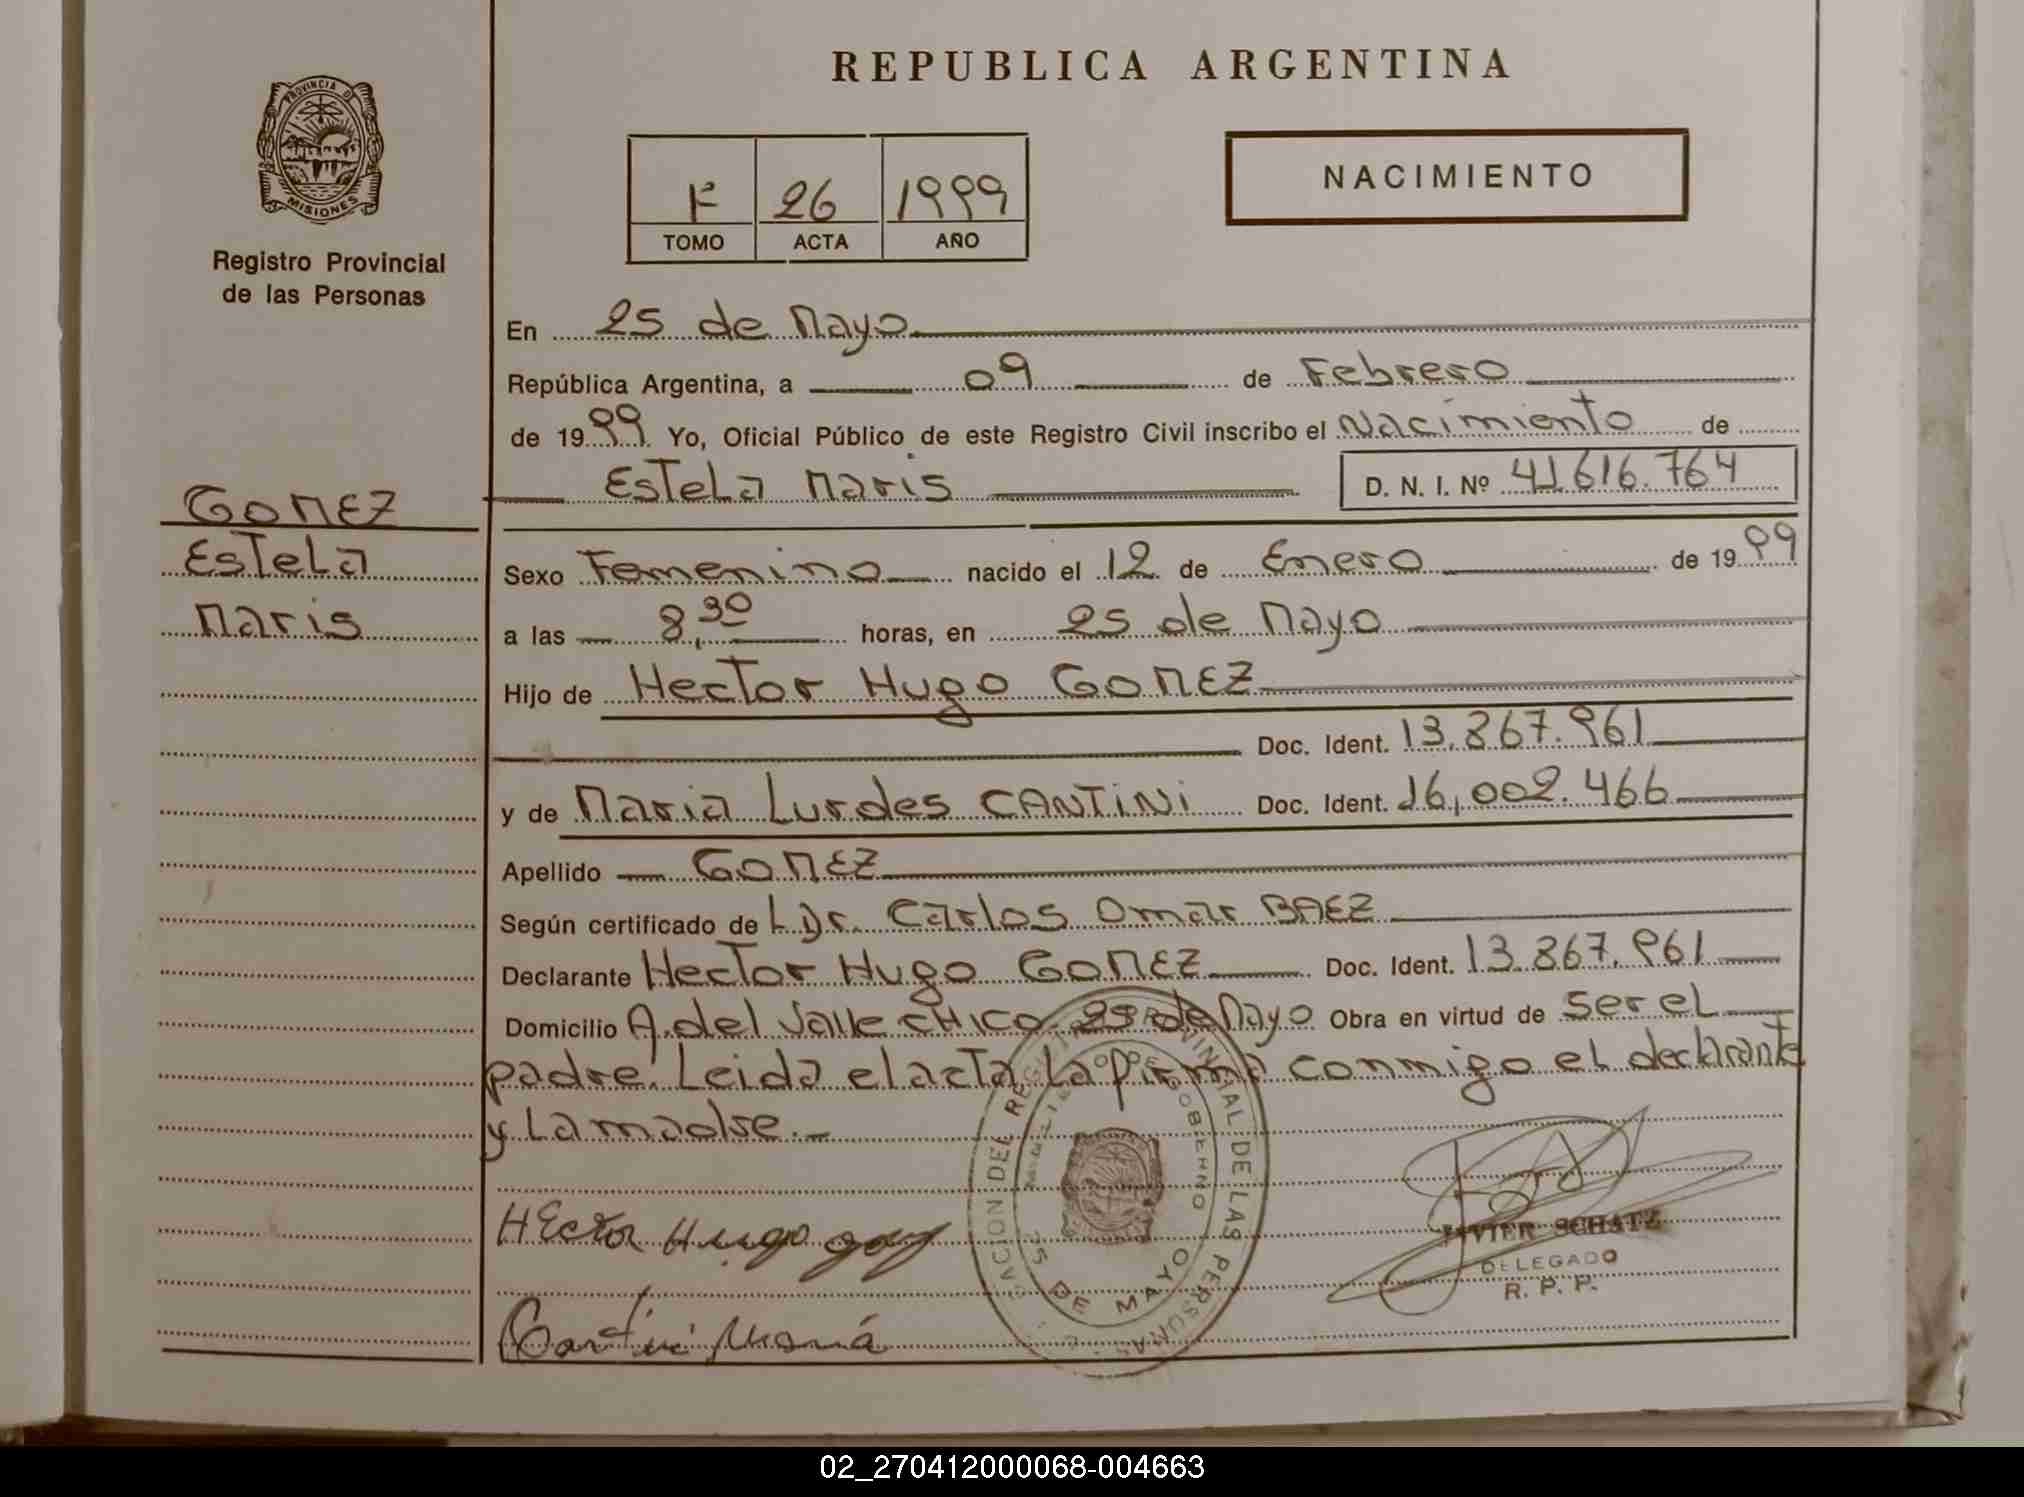 REPUBLICA ARGENTINA
PROVINCIA DE
MISIONES
Registro Provincial
de las Personas
F 26 1999
TOMO ACTA AÑO
NACIMIENTO
En 25 de Mayo
República Argentina, a 09 de Febrero
de 1999 Yo, Oficial Público de este Registro Civil inscribo el Nacimiento de
Estela Maris D. N. I. Nº 41.616.764
GOMEZ
Estela
Maris
Sexo Femenino nacido el 12 de Enero de 1999
a las 8,30 horas, en 25 de Mayo
Hijo de Hector Hugo GOMEZ
Doc. Ident. 13.867.961
y de Maria Lurdes CANTINI Doc. Ident. 16,002.466
Apellido GOMEZ
Según certificado de L Dr. Carlos Omar BAEZ
Declarante Hector Hugo GOMEZ Doc. Ident. 13.867.961
Domicilio A. del Valle CHICO 25 de Mayo Obra en virtud de ser el
padre. Leida el acta, La firma conmigo el declarante
y La madre.-
Hector Hugo
Cantini María
DEL REGISTRO PROVINCIAL DE LAS PERSONAS
MINISTERIO DE GOBIERNO
25 DE MAYO
JAVIER SCHATZ
DELEGADO
R. P. P.
02_270412000068-004663